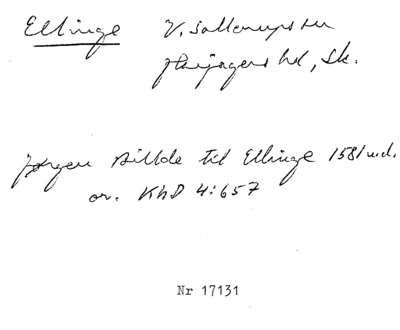 Ellinge V. Sallerups sn
Harjagers hd, Sk.
Jørgen Billde til Ellinge 1581 u.d.
or. KhD 4:657
Nr 17131